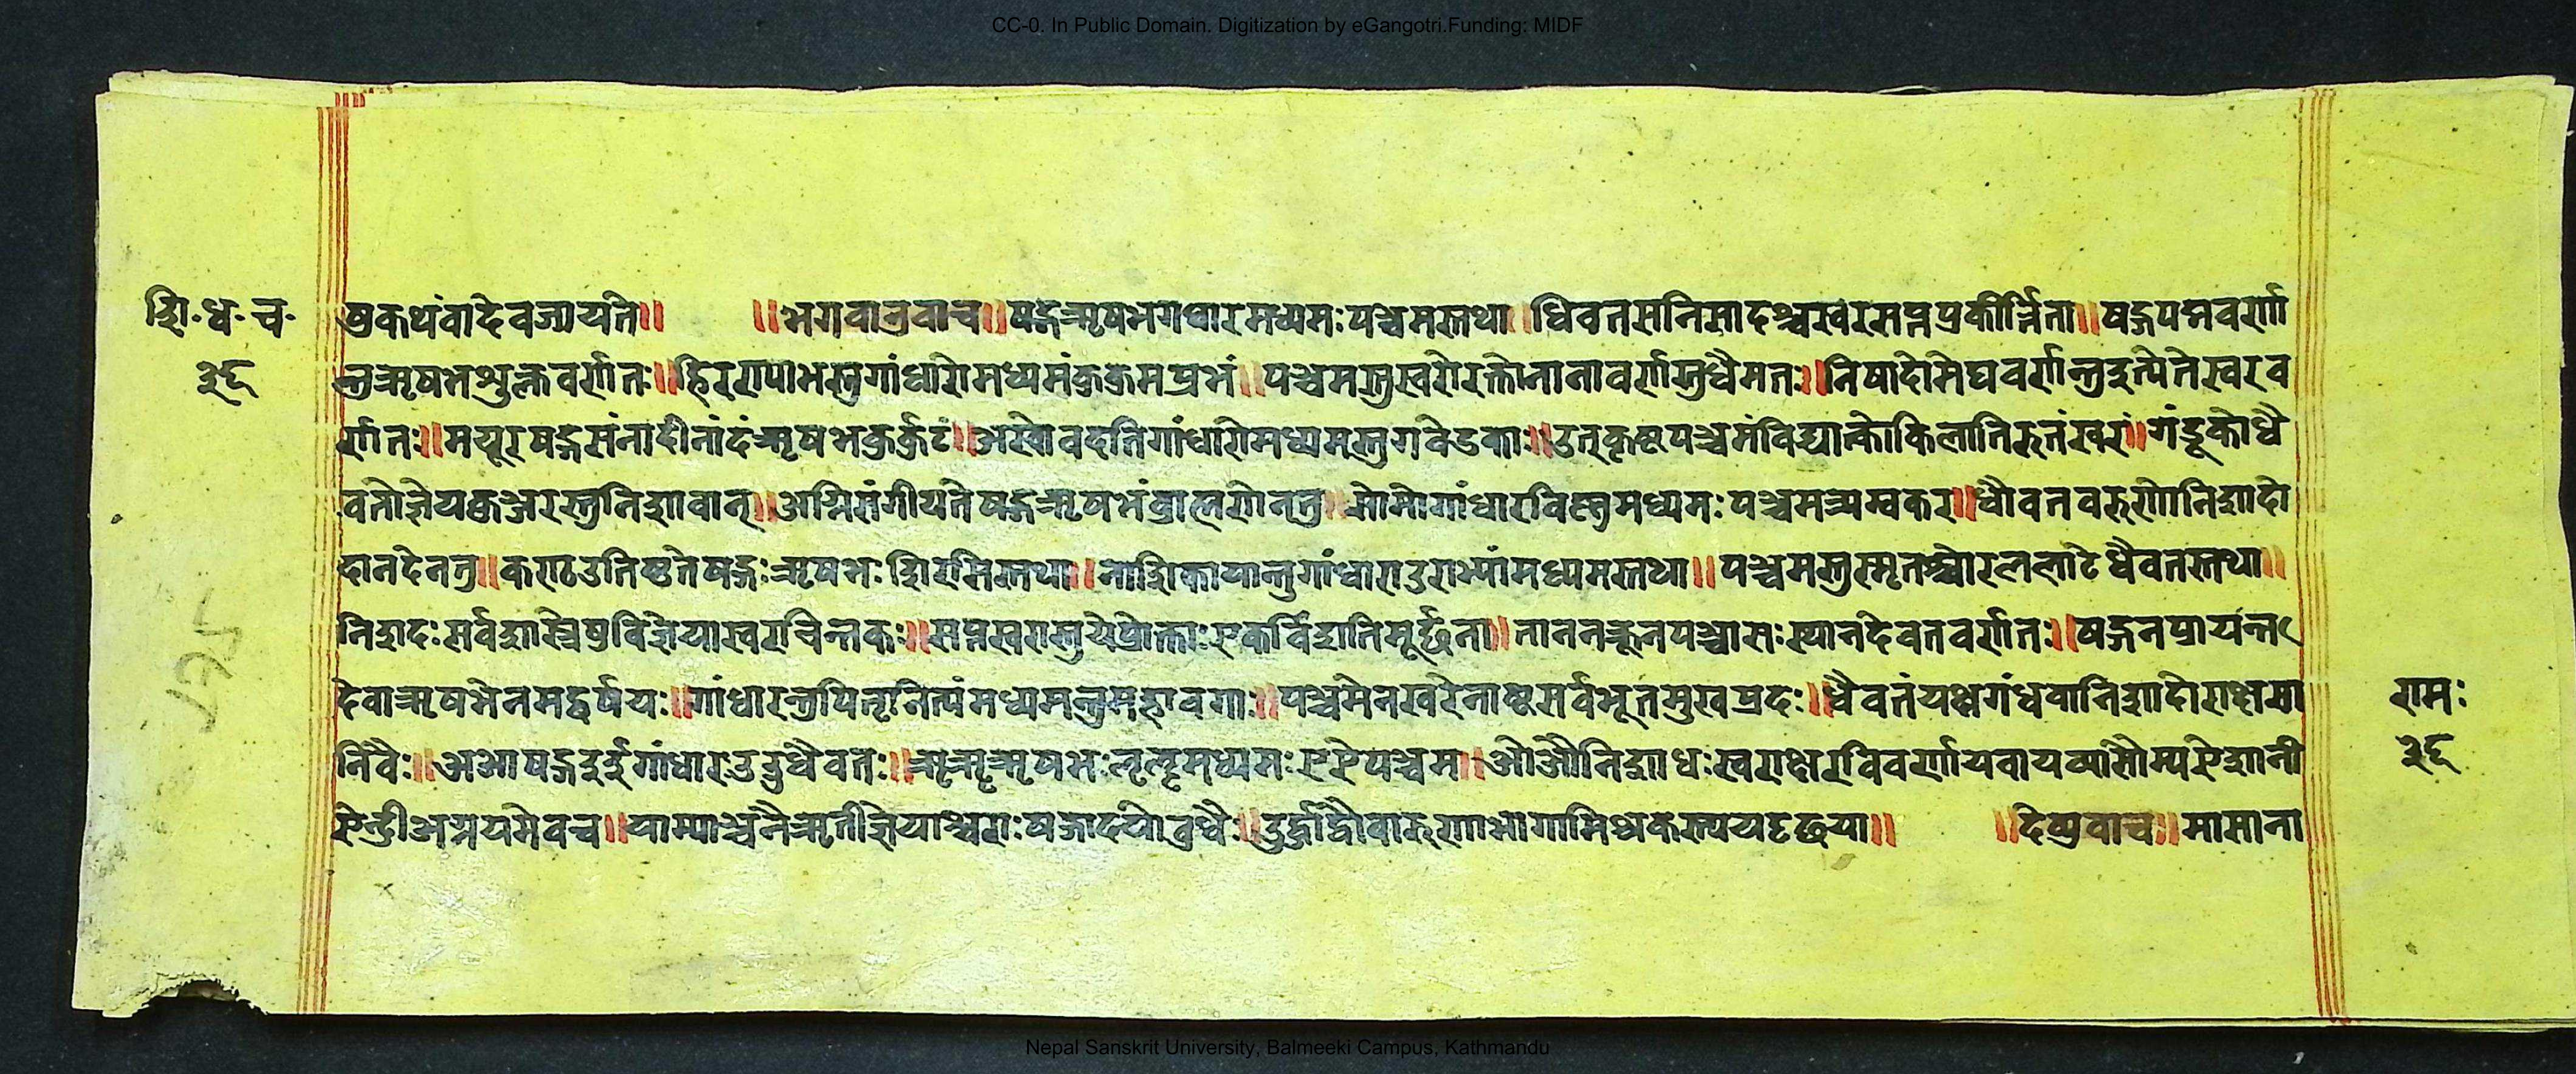 CC-0. In Public Domain. Digitization by eGangotri.Funding: MIDF
शि॰ध॰च॰
३६
षुकथंवादेवज्यायते॥ ॥भगवानुवाच॥षड्गऋषभगधारमध्यमःपञ्चमस्तथा॥धिवतसनिसादश्चस्वरसप्तप्रकीर्त्तिता॥षड्गपद्मवर्णा
न्तुऋषभशुक्लवर्णतः॥हिरण्याभस्तुगांधारोमध्यमंकुकुमप्रभं॥पञ्चमस्तुस्वरोरक्तोनानावर्णस्तुधैमतः॥निषादोमेघवर्णन्तुइत्येतेस्वरव
र्णतः॥मयूरषड्गसंनादीनांदंऋषभकुर्कुटं॥अस्वोवदतिगांधारोमध्यमस्तुगवेडकाः॥उत्कृष्टपञ्चमंविद्यात्कोकिलातिरुतंस्वरां॥गंडूकोधै
वतोज्ञेयकुञ्जरस्तुनिशावान्॥अग्निसंगीयतेषड्गऋषभंब्राह्मणेनतु॥सोमोगांधारविष्णुमध्यमःपञ्चमत्र्यम्वकर॥धौवतवरुणोनिशादो
दानदेनतु॥कण्ठउतिष्ठतेषड्गःऋषभःशिरसिस्तथा॥नाशिकायान्तुगांधाराउराभ्यांमध्यमस्तथा॥पञ्चमस्तुस्मृतश्चोरललाटेधैवतस्तथा॥
निशदःसर्वशास्त्रेषुविज्ञेयास्वरचिन्तकः॥सप्तस्वरास्तुयेप्रोक्ताःएकविंशतिमूर्छना॥तानन्यूनपञ्चासःस्थानदेवतवर्णतः॥षड्गनप्रायन्त
देवाऋषभेनमद्वर्षयः॥गांधारन्त्रपितृनित्यंमध्यमन्तुमहावगाः॥पञ्चमेनस्वरेनाष्टसर्वभूतसुखप्रदः॥धैवतंयक्षगंधवानिशादोराक्षसा
निवैः॥अआषड्गइईगांधारउऊधैवतः॥ऋॠऋषभःऌॡमध्यमःएऐपञ्चम॥ओऔनिशाधःस्वराक्षरविवर्णायवायव्यांसौम्यऐशानी
ऐन्द्रीअग्नयमेवच॥याम्याञ्चनैऋतीज्ञेयाश्चराःषड्जादयोवुधैः॥दुर्द्धाद्वौवारुणाभागामिश्रकस्ययदृछया॥ ॥देव्युवाच॥मासाना
रामः
३६
Nepal Sanskrit University, Balmeeki Campus, Kathmandu